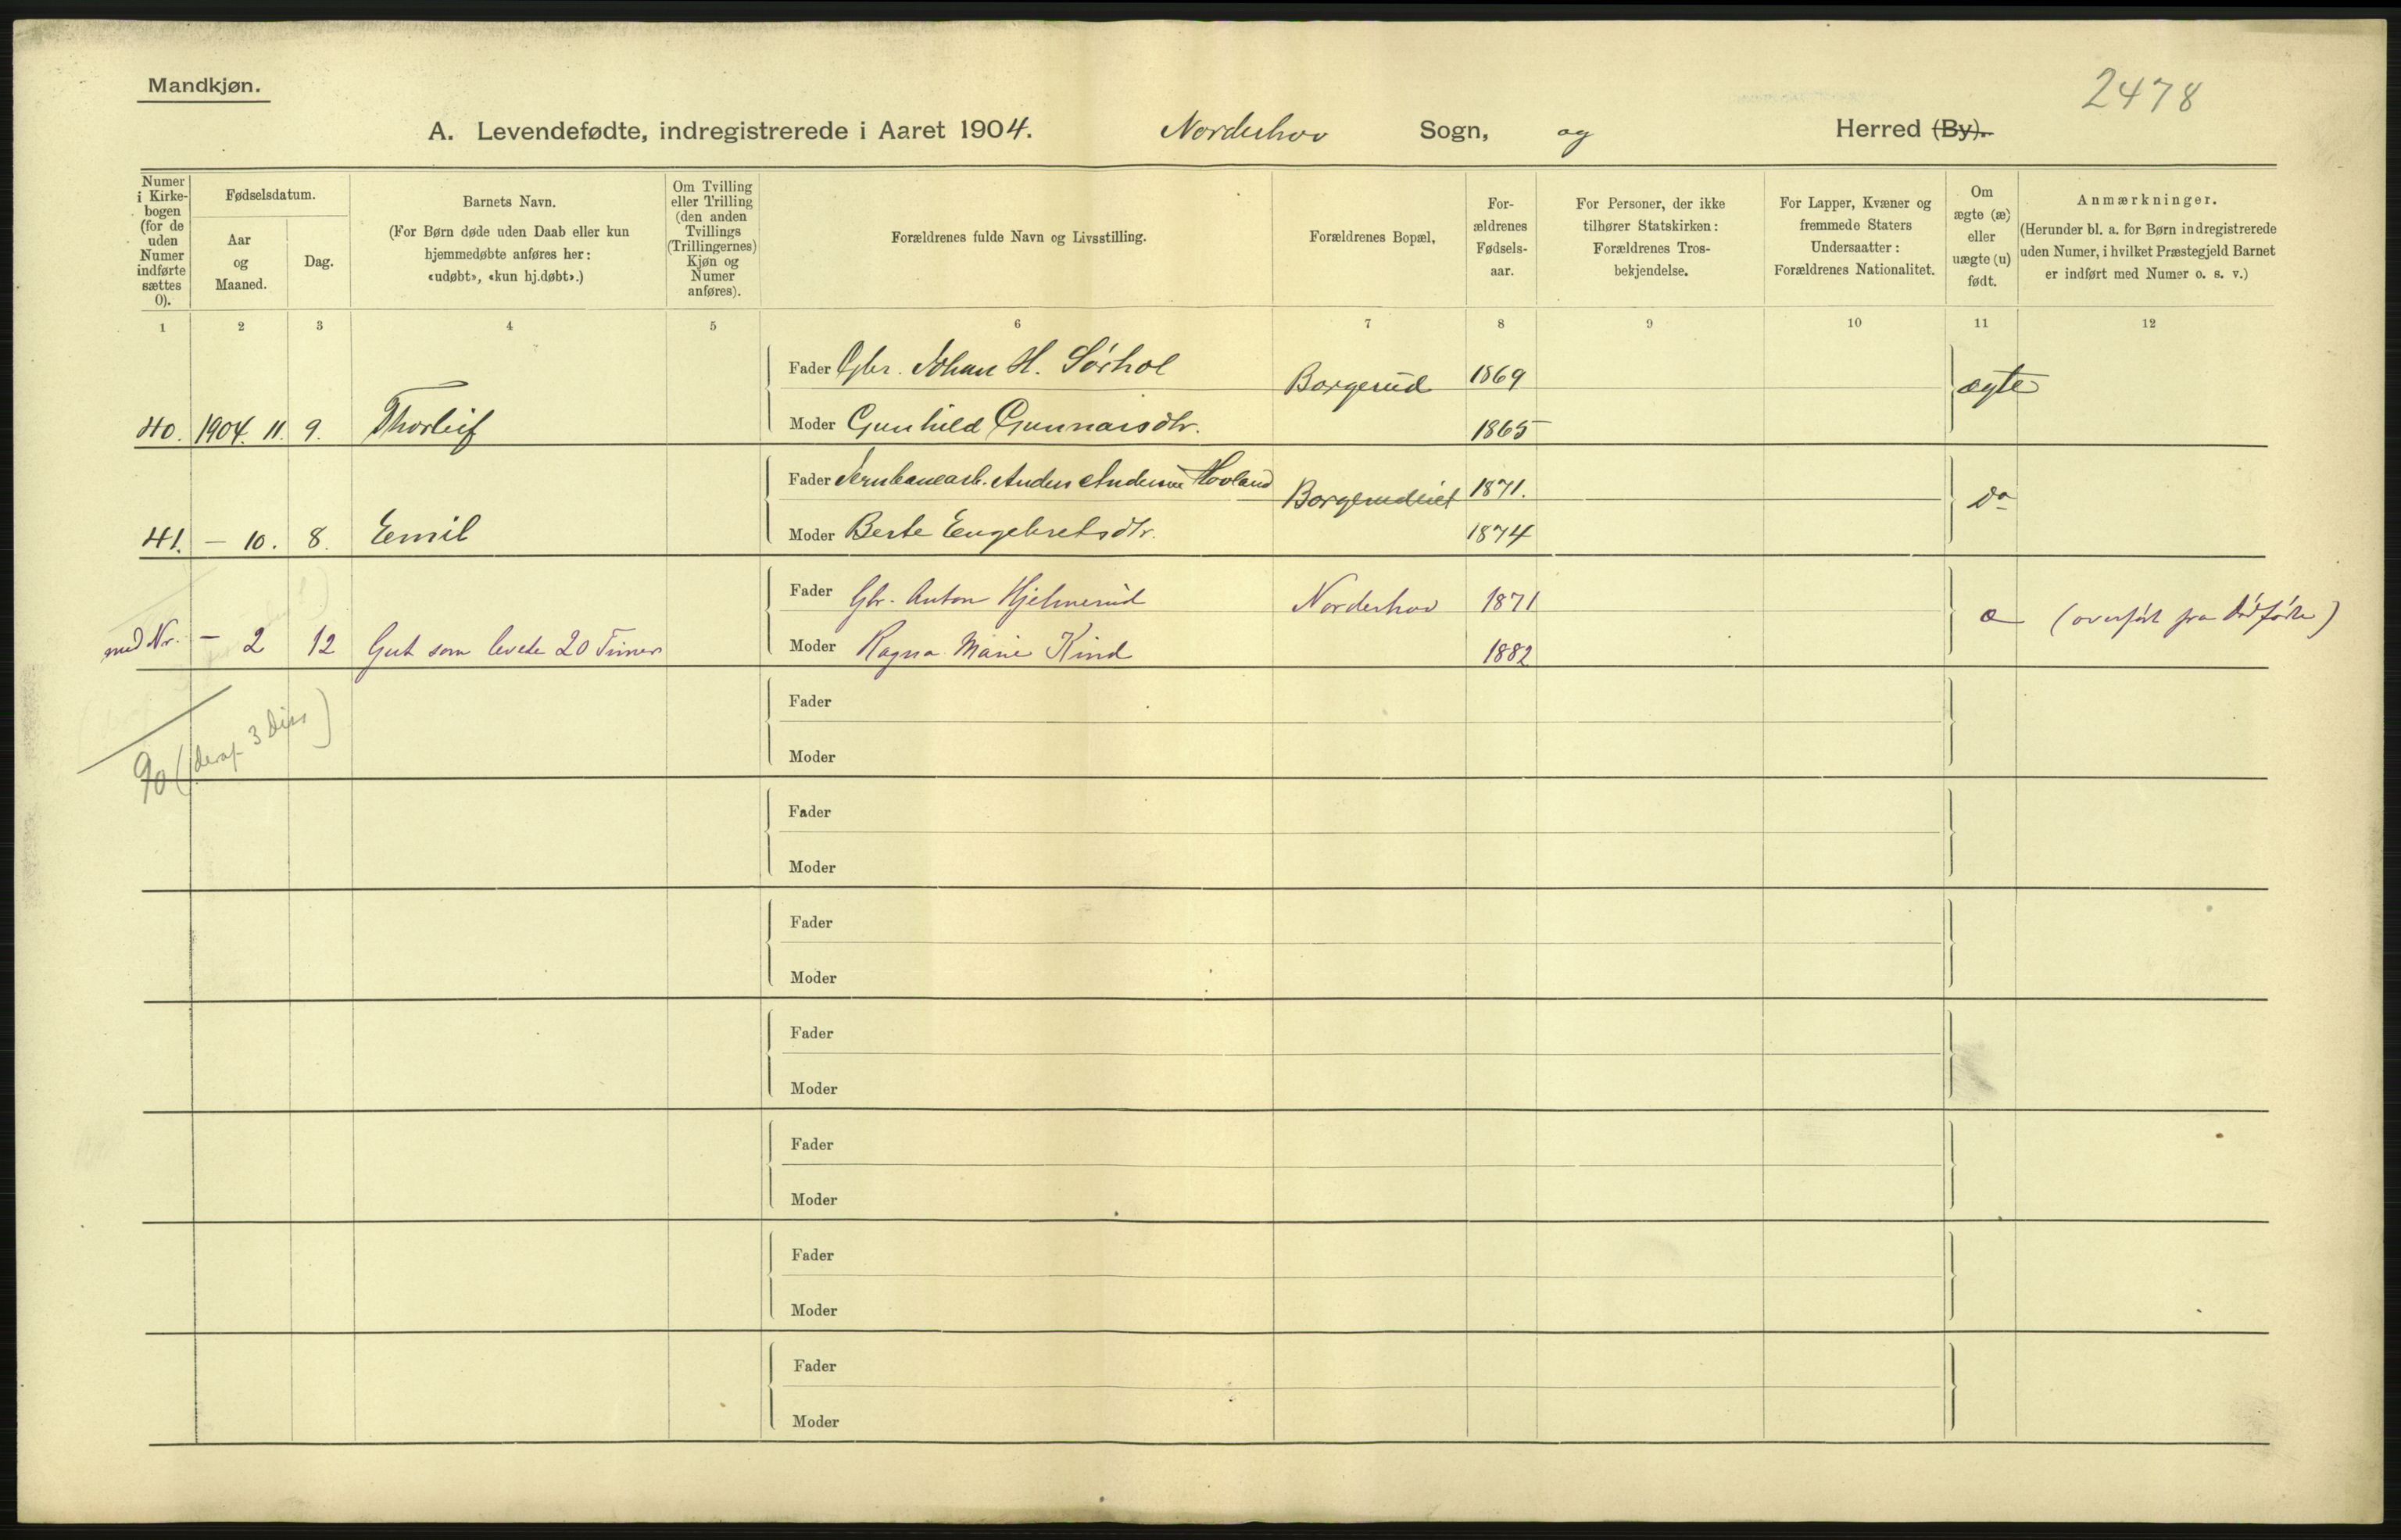 Mandkjøn.
2478
A. Levendefødte, indregistrerede i Aaret 1904. Norderhov Sogn, og Herred (By).
Numer i Kirkebogen (for de uden Numer indførte sættes 0).
Fødselsdatum.
Aar og Maaned.
Dag.
Barnets Navn.
(For Børn døde uden Daab eller kun
hjemmedøbte anføres her:
«udøbt», «kun hj.døbt».)
Om Tvilling
eller Trilling
(den anden
Tvillings
(Trillingernes)
Kjøn og
Numer
anføres).
Forældrenes fulde Navn og Livsstilling.
Forældrenes Bopæl,
For-
ældrenes
Fødsels-
aar.
For Personer, der ikke
tilhører Statskirken:
Forældrenes Tros-
bekjendelse.
For Lapper, Kvæner og
fremmede Staters
Undersaatter:
Forældrenes Nationalitet.
Om
ægte (æ)
eller
uægte (u)
født.
Anmærkninger.
(Herunder bl. a. for Børn indregistrerede
uden Numer, i hvilket Præstegjeld Barnet
er indført med Numer o. s. v.)
1 2 3 4 5 6 7 8 9 10 11 12
Fader Gbr. Johan H. Sørhol Borgerud 1869 ægte
40. 1904. 11. 9. Thorleif Moder Gunhild Gunnarsdtr. 1865
Fader Jernbanearb. Anders Andersen Hovland Borgerudeiet 1871. do
41. — 10. 8. Emil Moder Berte Engebretsdtr. 1874
Fader Gbr. Anton Hjelmerud Norderhov 1871 æ (overført fra dødfødte)
med Nr. — 2 12 Gut som levede 20 Timer Moder Ragna Marie Kind 1882
90 (deraf 3 Diss)
Fader
Moder
Fader
Moder
Fader
Moder
Fader
Moder
Fader
Moder
Fader
Moder
Fader
Moder